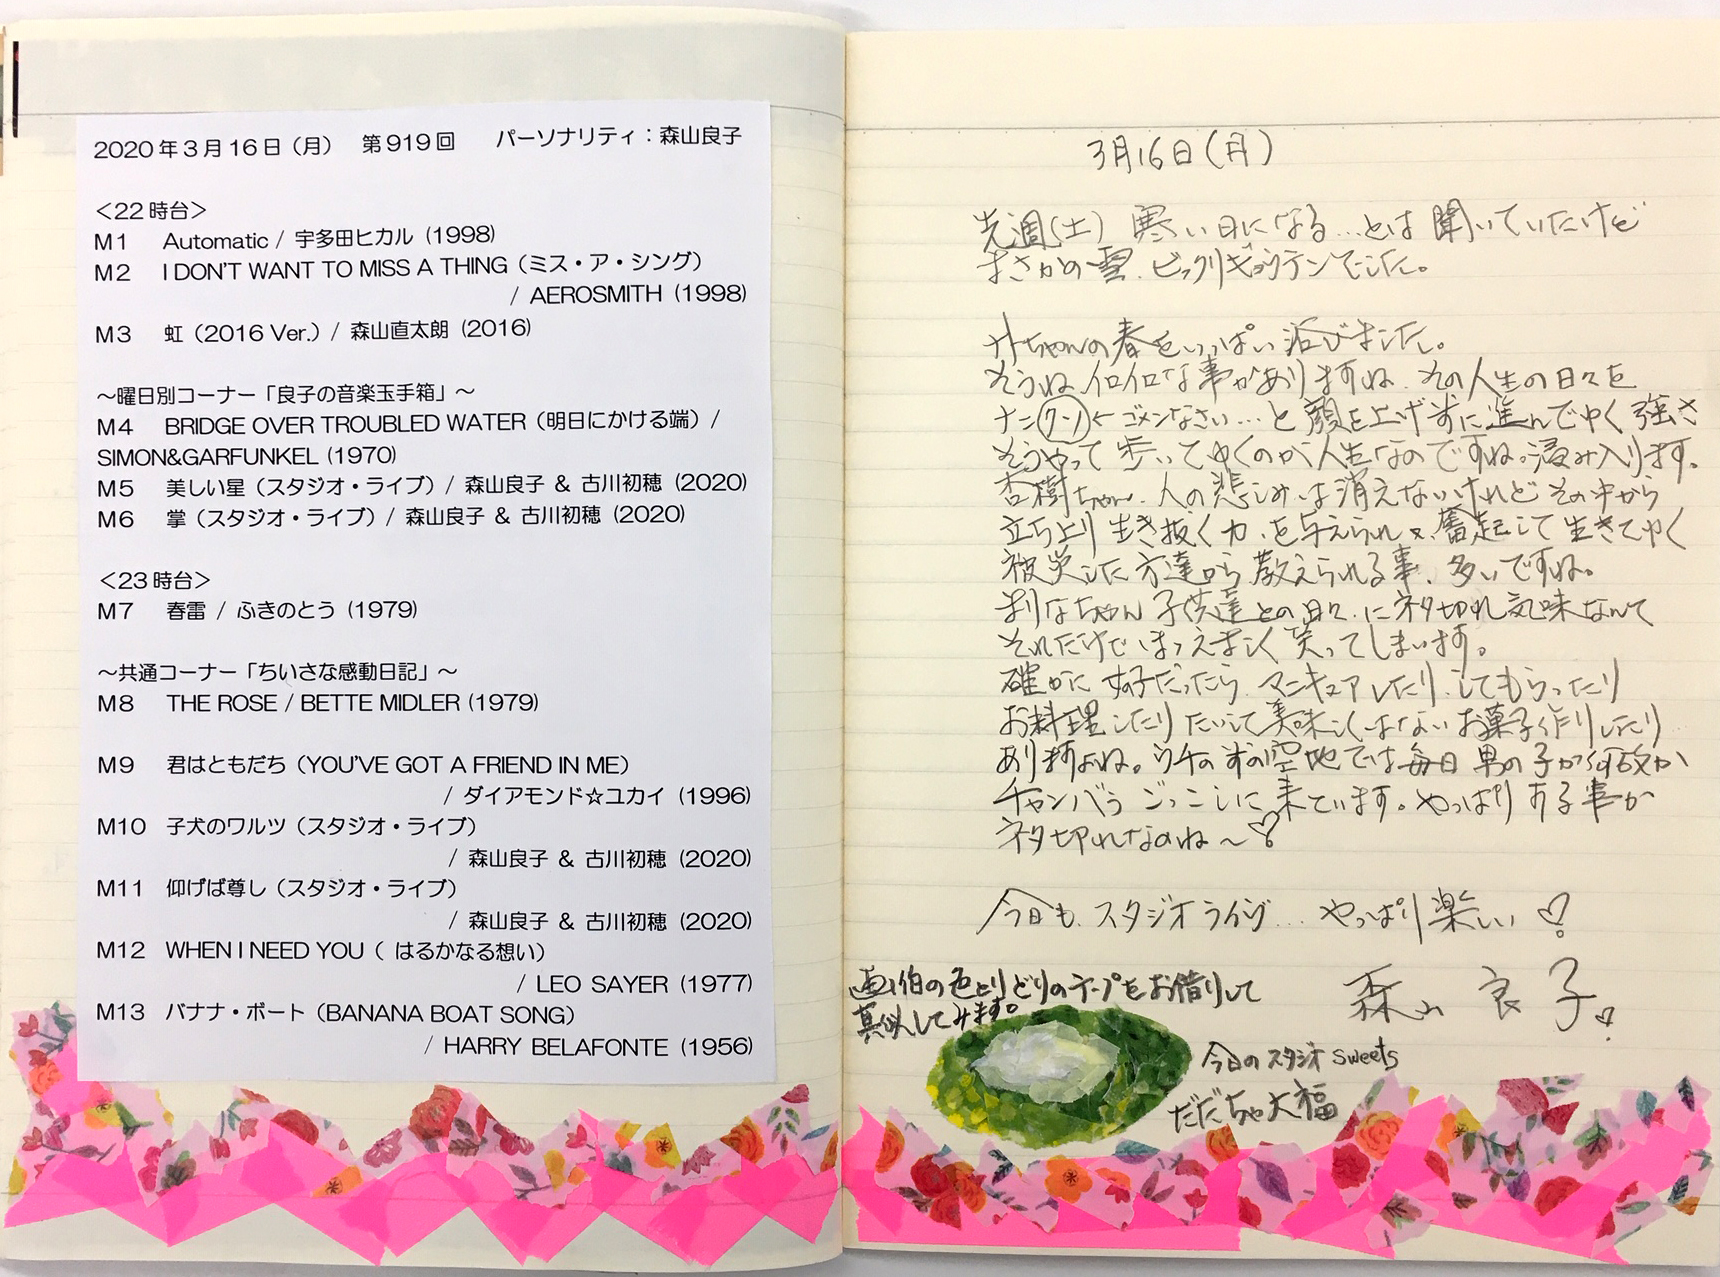 2020年3月16日（月）　第919回　　パーソナリティ：森山良子
＜22時台＞
M1　Automatic / 宇多田ヒカル (1998)
M2　I DON'T WANT TO MISS A THING（ミス・ア・シング）
/ AEROSMITH (1998)
M3　虹（2016 Ver.）/ 森山直太朗 (2016)
～曜日別コーナー「良子の音楽玉手箱」～
M4　BRIDGE OVER TROUBLED WATER（明日にかける端）/
SIMON&GARFUNKEL (1970)
M5　美しい星（スタジオ・ライブ）/ 森山良子 & 古川初穂 (2020)
M6　掌（スタジオ・ライブ）/ 森山良子 & 古川初穂 (2020)
＜23時台＞
M7　春雷 / ふきのとう (1979)
～共通コーナー「ちいさな感動日記」～
M8　THE ROSE / BETTE MIDLER (1979)
M9　君はともだち（YOU'VE GOT A FRIEND IN ME）
/ ダイアモンド☆ユカイ (1996)
M10　子犬のワルツ（スタジオ・ライブ）
/ 森山良子 & 古川初穂 (2020)
M11　仰げば尊し（スタジオ・ライブ）
/ 森山良子 & 古川初穂 (2020)
M12　WHEN I NEED YOU（ はるかなる想い）
/ LEO SAYER (1977)
M13　バナナ・ボート（BANANA BOAT SONG）
/ HARRY BELAFONTE (1956)
3月16日(月)
先週(土) 寒い日になる…とは聞いていたけど
まさかの雪、ビックリギョウテンでした。
ちゃんの春をいっぱい浴びました。
そうねイロイロな事がありますね、その人生の日々を
ナニクソ←ゴメンなさい…と顔を上げずに進んでゆく強さ
そうやって歩いてゆくのが人生なのですね。浸み入ります。
杏樹ちゃん、人の悲しみは消えないけれどその中から
立ち上り生き抜く力を与えられ、奮起して生きてゆく
被災した方達から教えられる事、多いですね。
まりなちゃん 子供達との日々、にネタ切れ気味なんて
それだけでほほえましく笑ってしまいます。
確かに女の子だったら、マニキュアしたり、してもらったり
お料理したりたいして美味しくはないお菓子作りしたり
ありますよね。ウチの空地では毎日男の子が何故か
チャンバラごっこしに来ています。やっぱりある事が
ネタ切れなのね～♡
今日も、スタジオライヴ…やっぱり楽しい♡
森山良子♡
画伯の色とりどりのテープをお借りして
真似してみます。
今日のスタジオsweets
だだちゃ大福